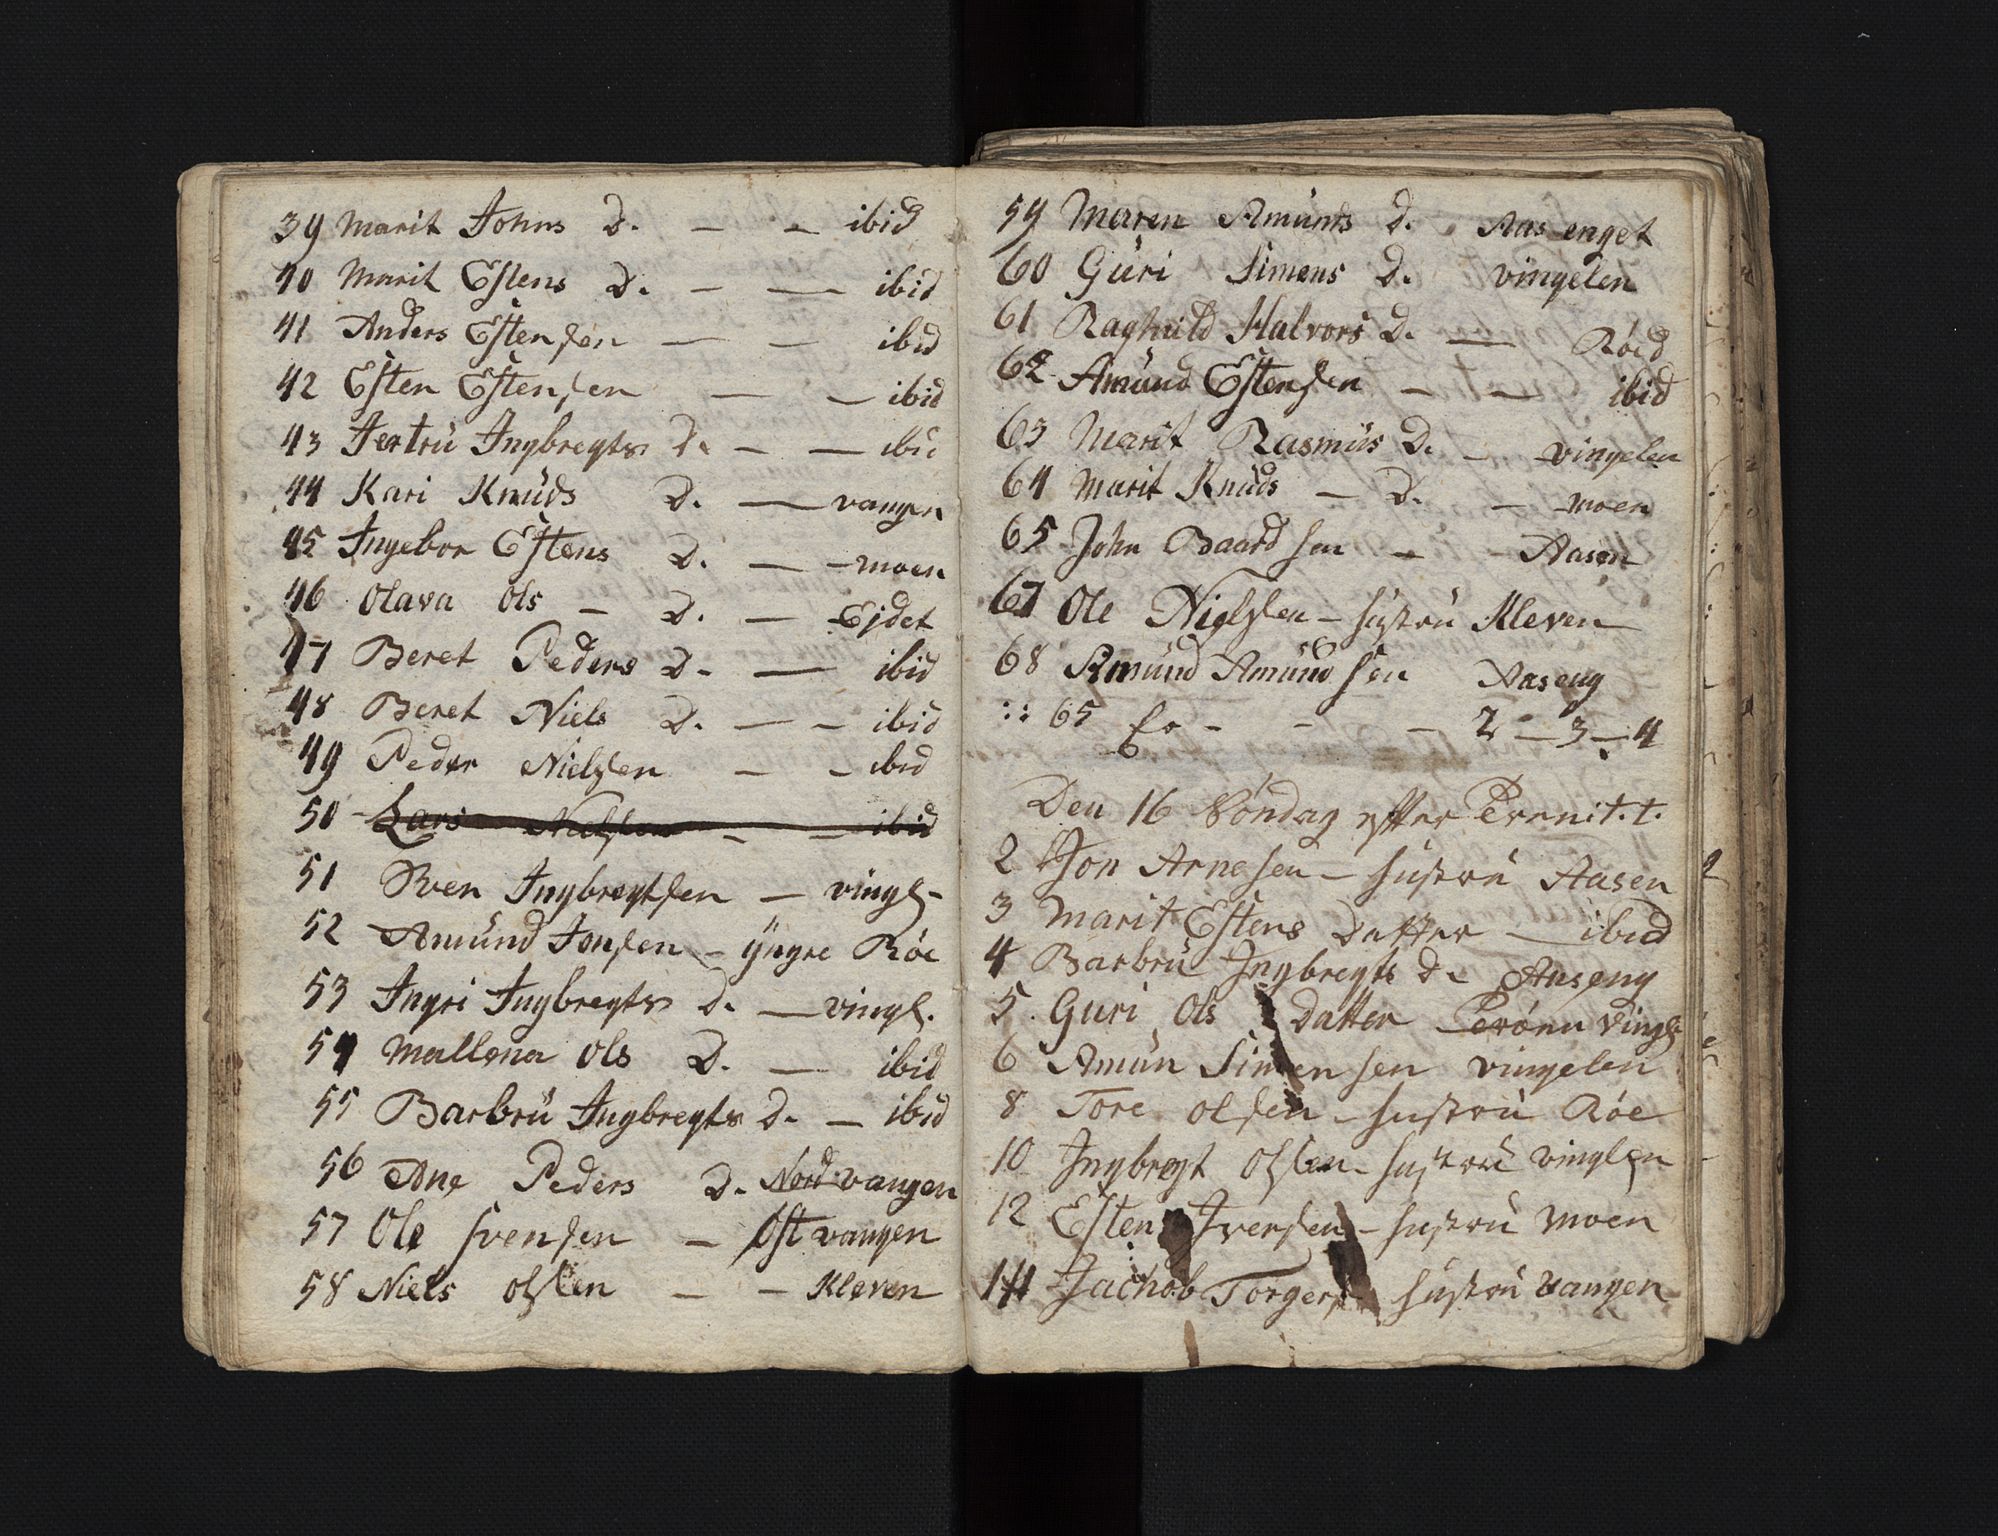 39 Marit Johns D. — — ibid
40 Marit Estens D. — — ibid
41 Anders Estensen — — ibid
42 Esten Estensen — — ibid
43 Jertrü Ingbregts D. — — ibid
44 Kari Knüds D. — vangen
45 Ingebor Estens D. — — moen
46 Olava Ols — D. — Ejdet
47 Beret Peders D. — ibid
48 Beret Niels D. — — ibid
49 Peder Nielsen — — ibid
50 Lars Nielsen — — ibid
51 Sven Ingbregtsen — vingl-
52 Amünd Jonsen — ÿngre Röe
53 Ingri Ingbregts D. — vingl.
54 Mallena Ols D. — ibid
55 Barbrü Ingbregts D. — ibid
56 Ane Peders D. Nord vangen
57 Ole Svensen — Ost vangen
58 Niels Olsen — — Kleven
59 Maren Amünds D. Aas enget
60 Güri Simens D. vingelen
61 Raghnild Halvors D. — Röed
62 Amünd Estensen — — ibid
63 Marit Rasmüs D. — vingelen
64 Marit Knüds — D. — moen
65 John Baardsen — — Aasen
67 Ole Nielsen — hustrü Kleven
68 Amünd Amündsen Aaseng
:: 65 — — — 2 — 3 — 4
Den 16 Söndag efter Trenit.t.
2 Jon Arnesen — hustrü Aasen
3 Marit Estens Datter — ibid
4 Barbrü Ingbregts d. Aaseng
5 Guri Ols Datter Vingl
6 Amün Simensen vingelen
8 Tore Olsen — hustrü Röe
10 Ingbregt Olsen — hustrü vinglen
12 Esten Iversen — hustrü Moen
14 Jachob Torgers hustrü vangen